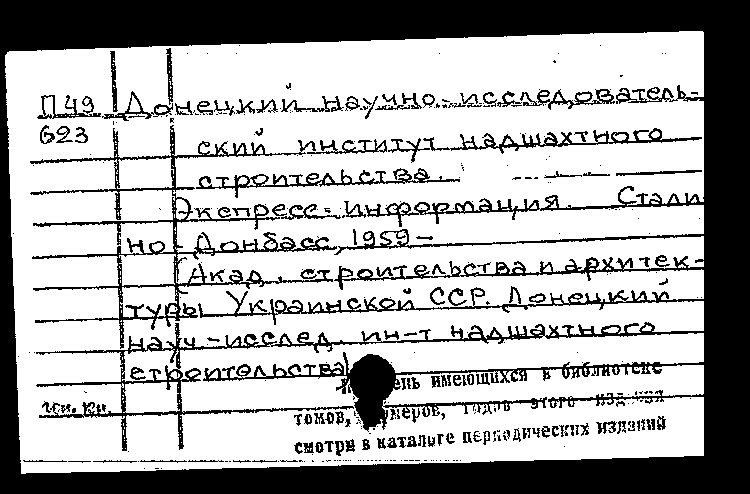 П49 Донецкий научно-исследователь-
623
ский институт надшахтного
строительства.
Экспресс-информация. Стали
но-Донбасс, 1959-
(Акад. строительства и архитек-
туры Украинской ССР. Донецкий
науч-исслед. ин-т надшахтного
строительства)
имеющихся в библиотеке
томов, номеров, годов этого издания
смотри в каталоге периодических изданий